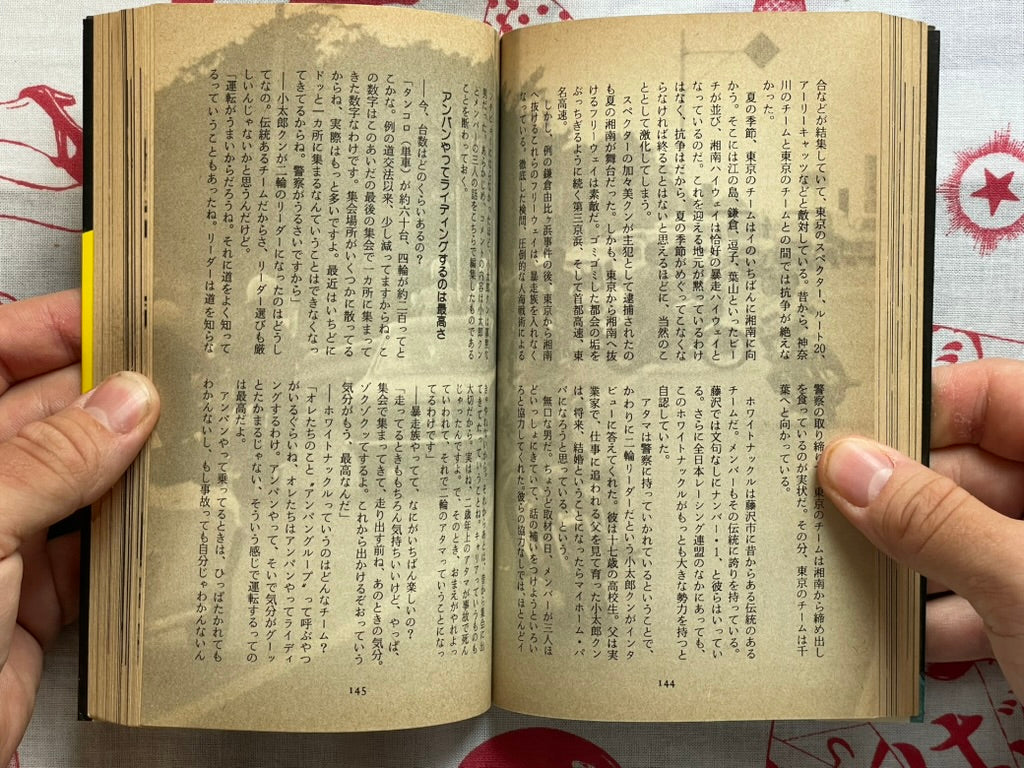 合などが結集していて、東京のスペクター、ルート20、
アーリーキャッツなどと敵対している。昔から、神奈
川のチームと東京のチームとの間では抗争が絶えな
かった。
夏の季節、東京のチームはイのいちばんに湘南に向
かう。そこには江の島、鎌倉、逗子、葉山といったビー
チが並び、湘南ハイウェイは恰好の暴走ハイウェイと
なっているのだ。これを迎える地元が黙っているわけ
はなく、抗争はだから、夏の季節がめぐってこなくな
らなければ終ることはないと思えるほどに、当然のこ
ととして激化してしまう。
スペクターの加々美クンが主犯として逮捕されたの
も夏の湘南が舞台だった。しかも、東京から湘南へ抜
けるフリーウェイは素敵だ。ゴミゴミした都会の垢を
ぶっちぎるように続く第三京浜、そして首都高速、東
名高速。
しかし、例の鎌倉由比ヶ浜事件の後、東京から湘南
へ抜けるこれらのフリーウェイは、暴走族を入れなく
なっている。徹底した検問、圧倒的な人海戦術による
警察の取り締 東京のチームは湘南から締め出し
を食っているのが実状だ。その分、東京のチームは千
葉へと向かっている。
ホワイトナックルは藤沢市に昔からある伝統のある
チームだ。メンバーもその伝統に誇りを持っている。
藤沢では文句なしにナンバー・1、と彼らはいってい
る。さらに全日本レーシング連盟のなかにあっても、
このホワイトナックルがもっとも大きな勢力を持つと
自認していた。
アタマは警察に持っていかれているということで、
かわりに二輪リーダーだという小太郎クンがインタ
ビューに答えてくれた。彼は十七歳の高校生。父は実
業家で、仕事に追われる父を見て育った小太郎クン
は、将来、結婚ということになったらマイホーム・パ
パになろうと思っている、という。
無口な男だ。ちょうど取材の日、メンバーが三人ほ
どいっしょにきていて、話の補いをつけようといろい
ろと協力してくれた。彼らの協力なしでは、ほとんどイ
144
とメンバーの三人の話をこちらで編集したものである
ことを断わっておく。
アンパンやってライディングするのは最高さ
――今、台数はどのくらいあるの？
「タンコロ（単車）が約六十台、四輪が約二百ってと
こかな。例の道交法以来、少し減ってますからね。こ
の数字はこのあいだの最後の集会で一カ所に集まって
きた数字なわけです。集会場所がいくつかに散ってる
からね、実際はもっと多いですよ。最近はいちどに
ドッと一カ所に集まるなんていうことはできなくなっ
てきてるからね。警察がうるさいですから」
――小太郎クンが二輪のリーダーになったのはどうし
てなの。伝統あるチームだからさ、リーダー選びも厳
しいんじゃないかと思うんだけど。
「運転がうまいからだろうね。それに道をよく知って
るっていうこともあったね。リーダーは道を知らな
てきてたっていうことね。キャリアっていうものも
大切だから。実はね、二歳年上のアタマが事故で死ん
じゃったんですよ。で、そのとき、おまえがやれよっ
ていわれて、それで二輪のアタマっていうことになっ
てるわけです」
――暴走族やってて、なにがいちばん楽しいの？
「走ってるときももちろん気持ちいいけど、やっぱ、
集会で集まってきて、走り出す前ね、あのときの気分。
ゾクゾクッてするよ。これから出かけるぞおっていう
気分がもう、最高なんだ」
――ホワイトナックルっていうのはどんなチーム？
「オレたちのこと〝アンパングループ〟って呼ぶやつ
がいるぐらいね、オレたちはアンパンやってライディ
ングするわけ。アンパンやって、そいで気分がグーッ
とたかまるじゃない、そういう感じで運転するっての
は最高だよ。
アンパンやって乗ってるときは、ひっぱたかれても
わかんないし、もし事故っても自分じゃわかんないん
145